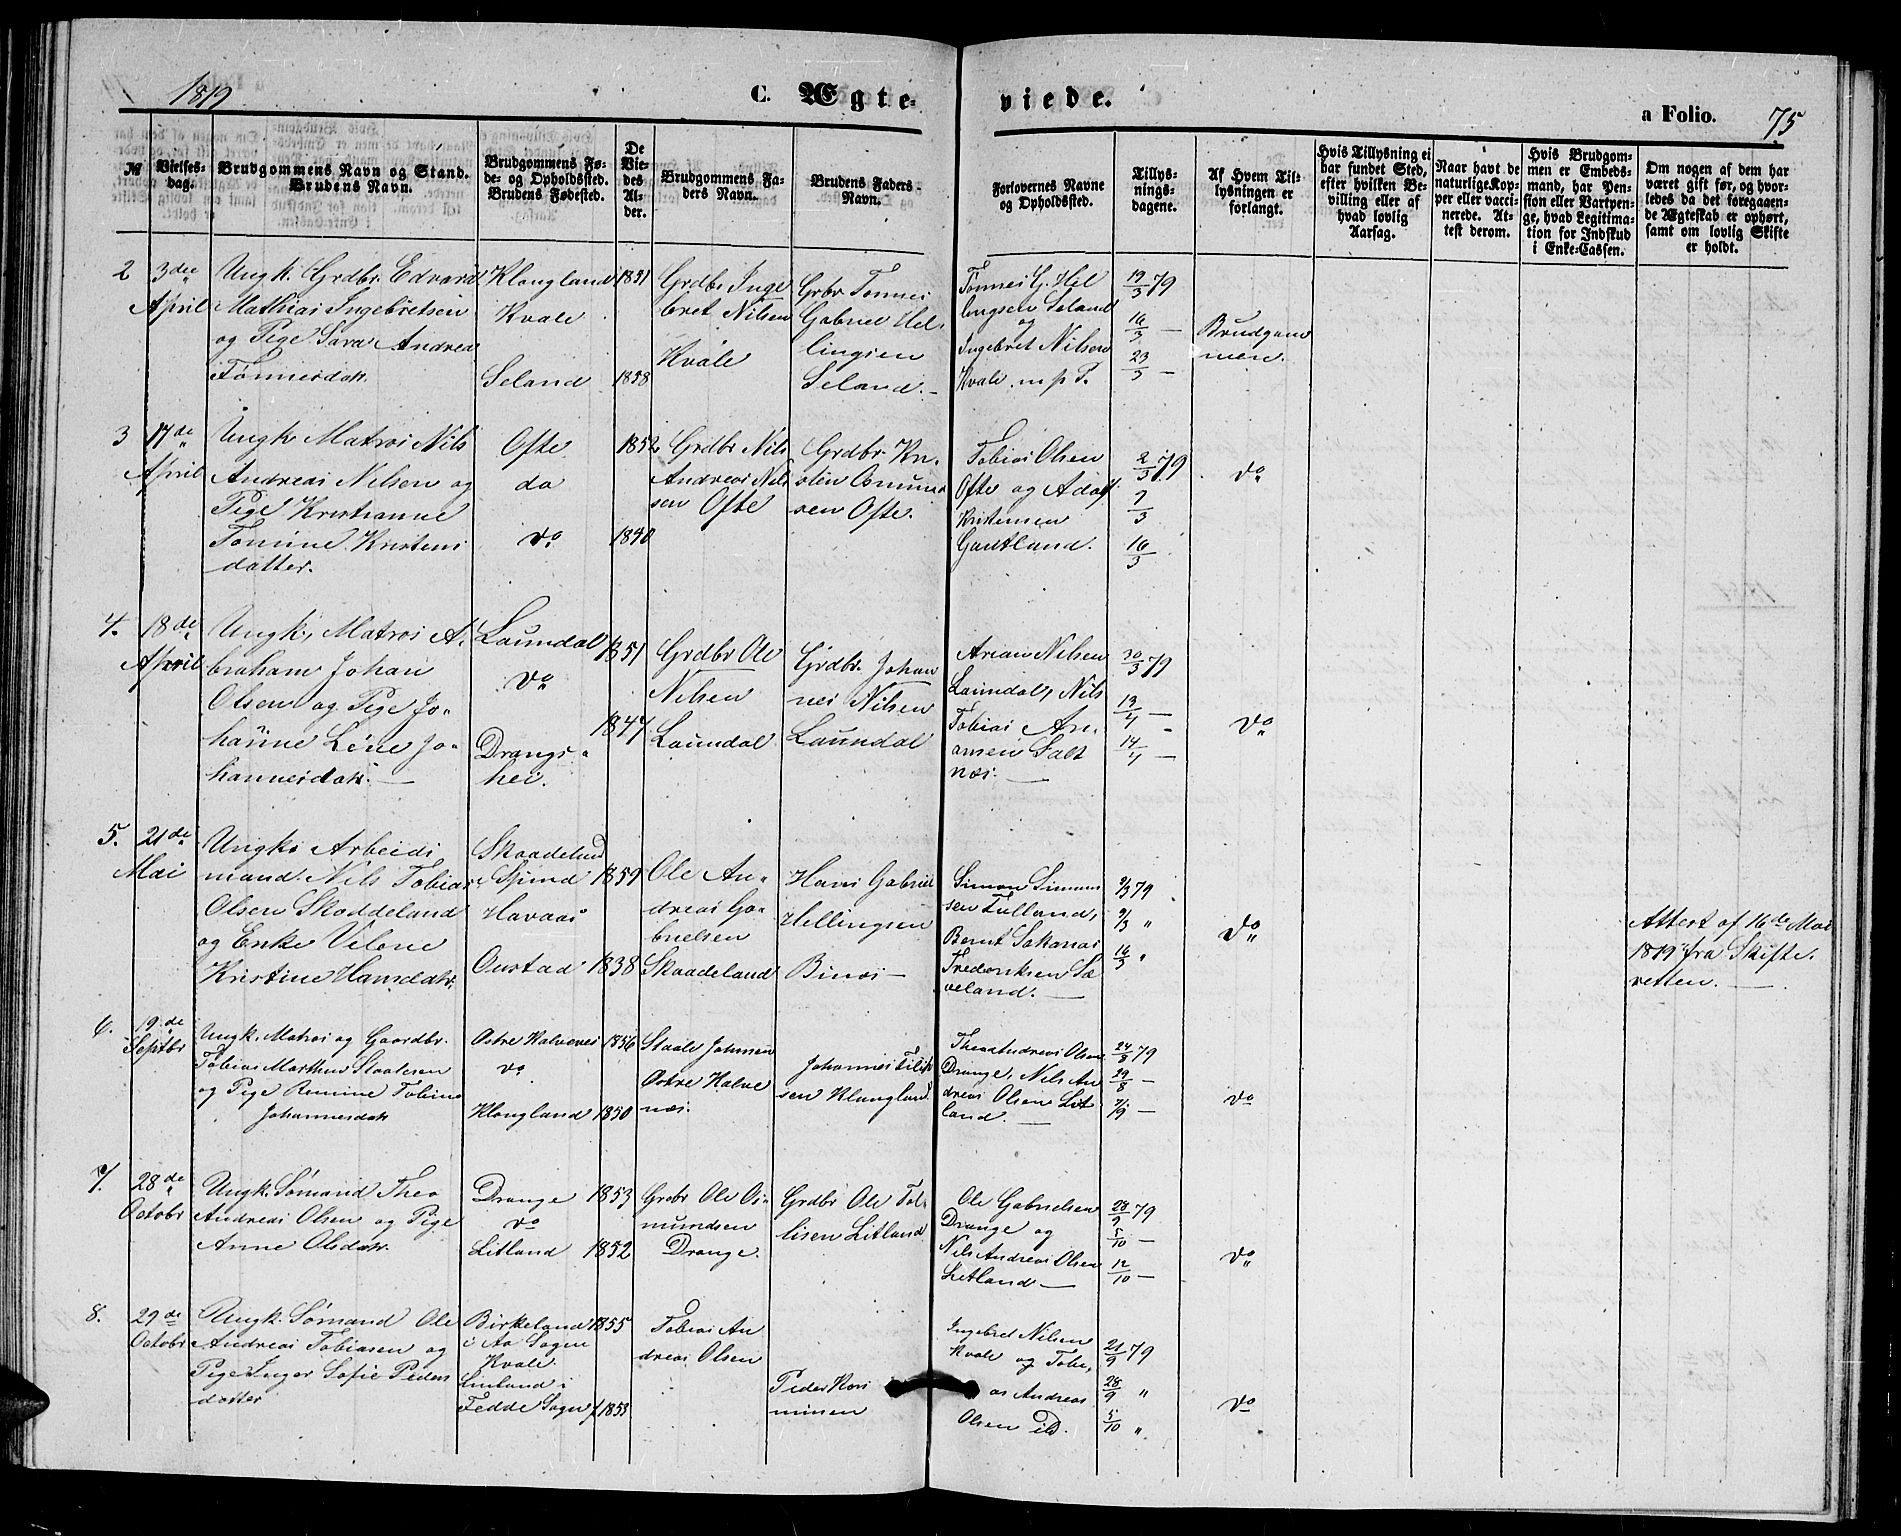 1879
C. Ægte-
viede.
a Folio.
75
№
Vielses-
dag.
Brudgommens Navn og Stand.
Brudens Navn.
Brudgommens Fø-
de- og Opholdssted.
Brudens Fødested.
De
Vie-
des
Al-
der.
Brudgommens Fa-
ders Navn.
Brudens Faders
Navn.
Forlovernes Navne
og Opholdssted.
Tillys-
nings-
dagene.
Af Hvem Til-
lysningen er
forlangt.
Hvis Tillysning ei
har fundet Sted,
efter hvilken Be-
villing eller af
hvad lovlig
Aarsag.
Naar havt de
naturlige Kop-
per eller vacci-
nerede. At-
test derom.
Hvis Brudgom-
men er Embeds-
mand, har Pen-
sion eller Vartpen-
ge, hvad Legitima-
tion for Indskud
i Enke-Cassen.
Om nogen af dem har
været gift før, og hvor-
ledes da det foregaaen-
de Ægteskab er ophørt,
samt om lovlig Skifte
er holdt.
2
3die
April
Ungk. Grdbr. Edvard
Mathias Ingebretsen
og Pige Sara Andrea
Tønnesdatr.
Klongland
Kvale
Seland
1851
1858
Grdbr. Inge
bret Nilsen
Kvale
Grbr Tønnes
Gabriel Hel-
lingsen
Seland.
Tønnes G. Hel
lingsen Seland
og
Ingebret Nilsen
Kvale. m. p. P.
19/3 79
16/3 —
23/3 —
Brudgom
men.
3
17de
April
Ungk. Matros Nils
Andreas Nilsen og
Pige Kristianne
Tomine Kristens
datter.
Ofte
do
do
1852
1840
Grdbr Nils
Andreas Nils
sen Ofte
Grdbr. Kri-
sten Osmund
sen Ofte.
Tobias Olsen
Ofte og Adolf
Kristensen
Gautland.
2/3 79
9/3
16/3
do
4.
18de
April
Ungk. Matros A-
braham Johan
Olsen og Pige Jo-
hanne Lene Jo-
hannesdatr. —
Laundal
do
Drangs-
hei.
1851
1847
Grdbr Ole
Nilsen
Laundal
Grdbr. Johan
nes Nilsen
Laundal
Arian Nilsen
Laundal, Nils
Tobias Ari-
ansen Salt
næs. —
30/3 79
13/4 —
14/4 —
do
5.
21de
Mai
Ungk. Arbeids
mand. Nils Tobias
Olsen Skoddeland
og Enke Vilene
Kristine Hansdatr.
Skaadeland
Spind
Havaas
Oustad
1859
1838
Ole An-
dreas Ga-
brielsen
Skaadeland
Hans Gabriel
Hellingsen
Binæs —
Simon Simons
sen Tulland,
Bernt Sakarias
Fredriksen Sæ
veland. —
2/3 79
9/3 "
16/3 "
do
Attest af 16de Mai
1879 fra Skifte-
retten. —
6.
19de
Septbr
Ungk. Matros og Gaardbr.
Tobias Marthin Staalesen
og Pige Remine Tobine
Johannesdatr
Østre Halvenes
do
Klongland
1856
1850
Staale Johnsen
Østre Halve
næs.
Johannes Filip
sen Klongland
Theo Andreas Olsen
Drange, Nils An
dreas Olsen Lit
land. —
24/8 79
29/8 —
7/9 —
do
7.
28de
Octobr
Ungk. Sømand Theo
Andreas Olsen og Pige
Anne Olsdatr.
Drange
do
Litland
1853
1852
Grdbr Ole Os-
mundsen
Drange.
Grdbr Ole Tol-
lisen Litland
Ole Gabrielsen
Drange og
Nils Andreas Olsen
Litland —
28/9 79
5/10 —
12/10 —
do
8.
29de
Octobr
Ungk. Sømand Ole
Andreas Tobiasen og
Pige Inger Sofie Peders
datter
Birkeland
i Aa Sogn
Kvale.
Linland i
Fedde Sogn
1855
1853
Tobias An
dreas Olsen
Peder Ras
musen
Ingebret Nilsen
Kvale og Tobi-
as Andreas
Olsen Eid.
21/9 79
28/9 "
5/10 "
do